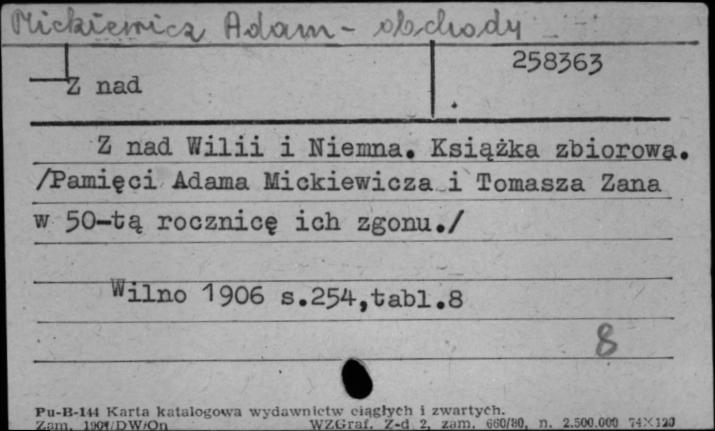 Mickiewicz Adam - obchody
258363
Z nad
Z nad Wilii i Niemna. Książka zbiorowa.
/Pamięci Adama Mickiewicza i Tomasza Zana
w 50-tą rocznicę ich zgonu./
Wilno 1906 s.254,tabl.8
8
Pu-B-144 Karta katalogowa wydawnictw ciągłych i zwartych.
Zam. 1901/DW/On WZGraf. Z-d 2, zam. 660/80, n. 2.500.000 74×120